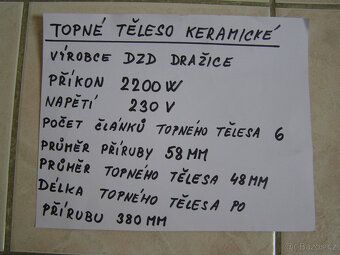 TOPNÉ TĚLESO KERAMICKÉ
VÝROBCE DZD DRAŽICE
PŘÍKON 2200W
NAPĚTÍ 230 V
POČET ČLÁNKŮ TOPNÉHO TĚLESA 6
PRŮMĚR PŘÍRUBY 58 MM
PRŮMĚR TOPNÉHO TĚLESA 48 MM
DÉLKA TOPNÉHO TĚLESA PO
PŘÍRUBU 380 MM